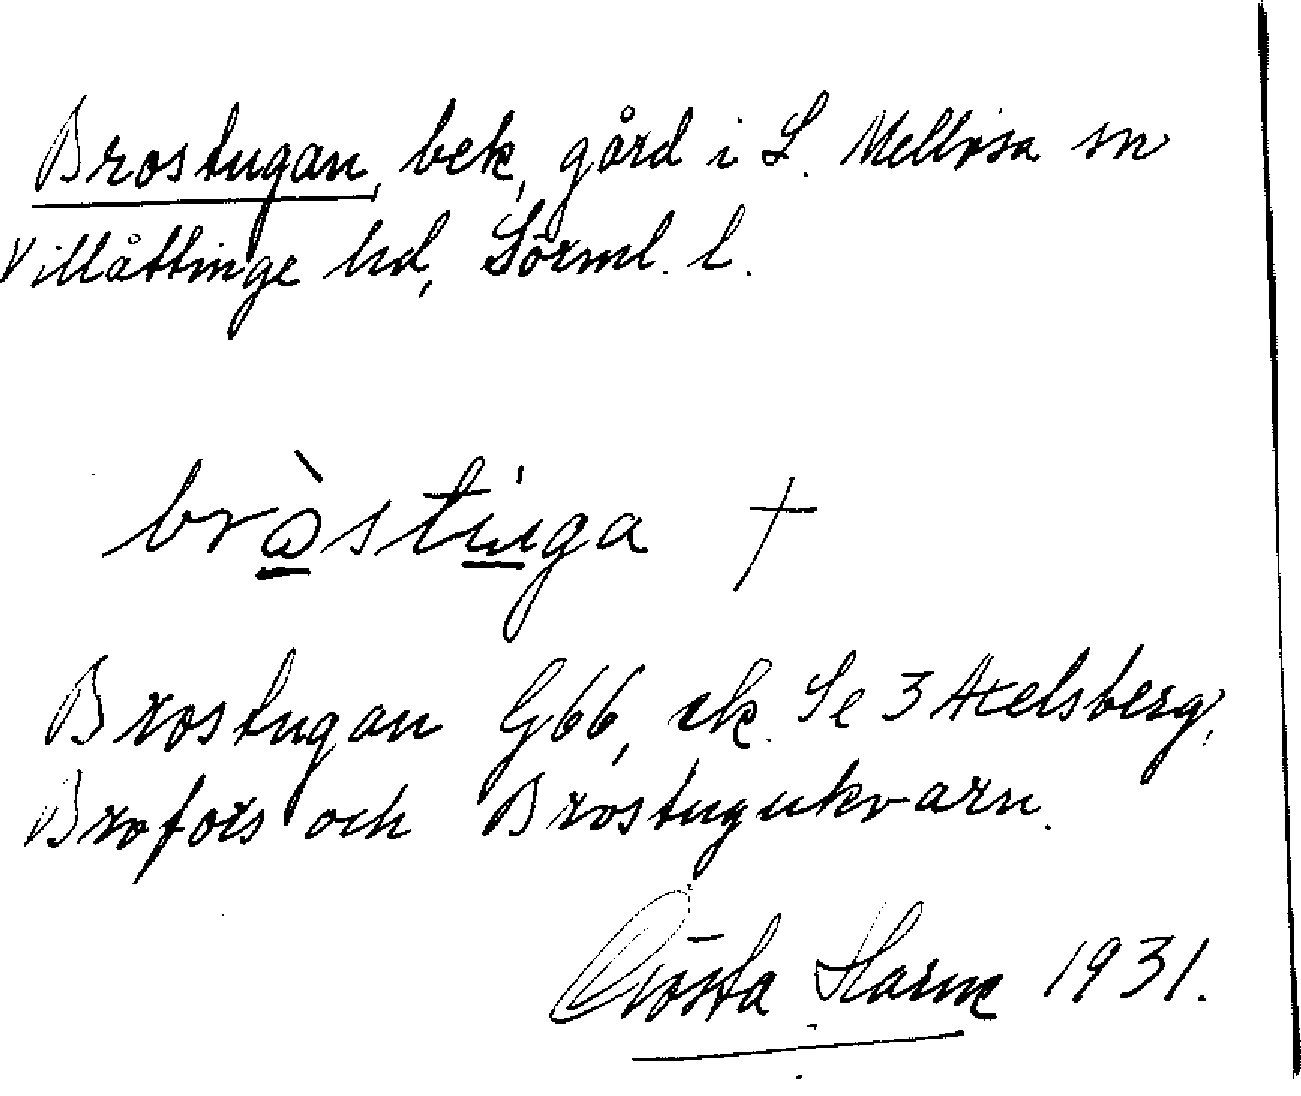 Brostugan, bek, gård i L. Mellösa sn
Villåttinge hd, Sörml. l.
bròstiuga †
Brostugan G66, ek. Se 3 Axelsberg,
Brofors och Brostugukvarn.
Gösta Harne 1931.